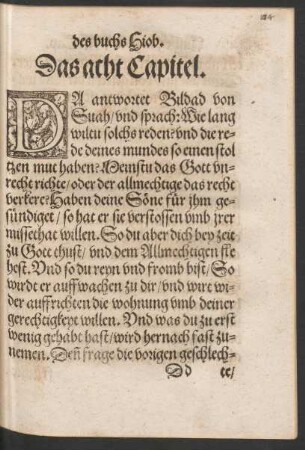 des buchs Hiob.
Das acht Capitel.
DA antwortet Bildad von
Suah/vnd sprach: Wie lang
wiltu solchs reden? vnd die re-
de deines mundes so einen stol
tzen mut haben? Meinstu das Gott vn-
recht richte/oder der allmechtige das recht
verkere? Haben deine Söne für jhm ge-
sündiget/so hat er sie verstossen vmb jrer
missethat willen. So du aber dich bey zeit
zu Gott thust/vnd dem Allmechtigen fle
hest. Vnd so du reyn vnd fromb bist/So
wirdt er auffwachen zu dir/vnd wirt wi-
der auffrichten die wohnung vmb deiner
gerechtigkeyt willen. Vnd was du zu erst
wenig gehabt hast/wird hernach fast zu-
nemen. Deñ frage die vorigen geschlech-
Dd te/